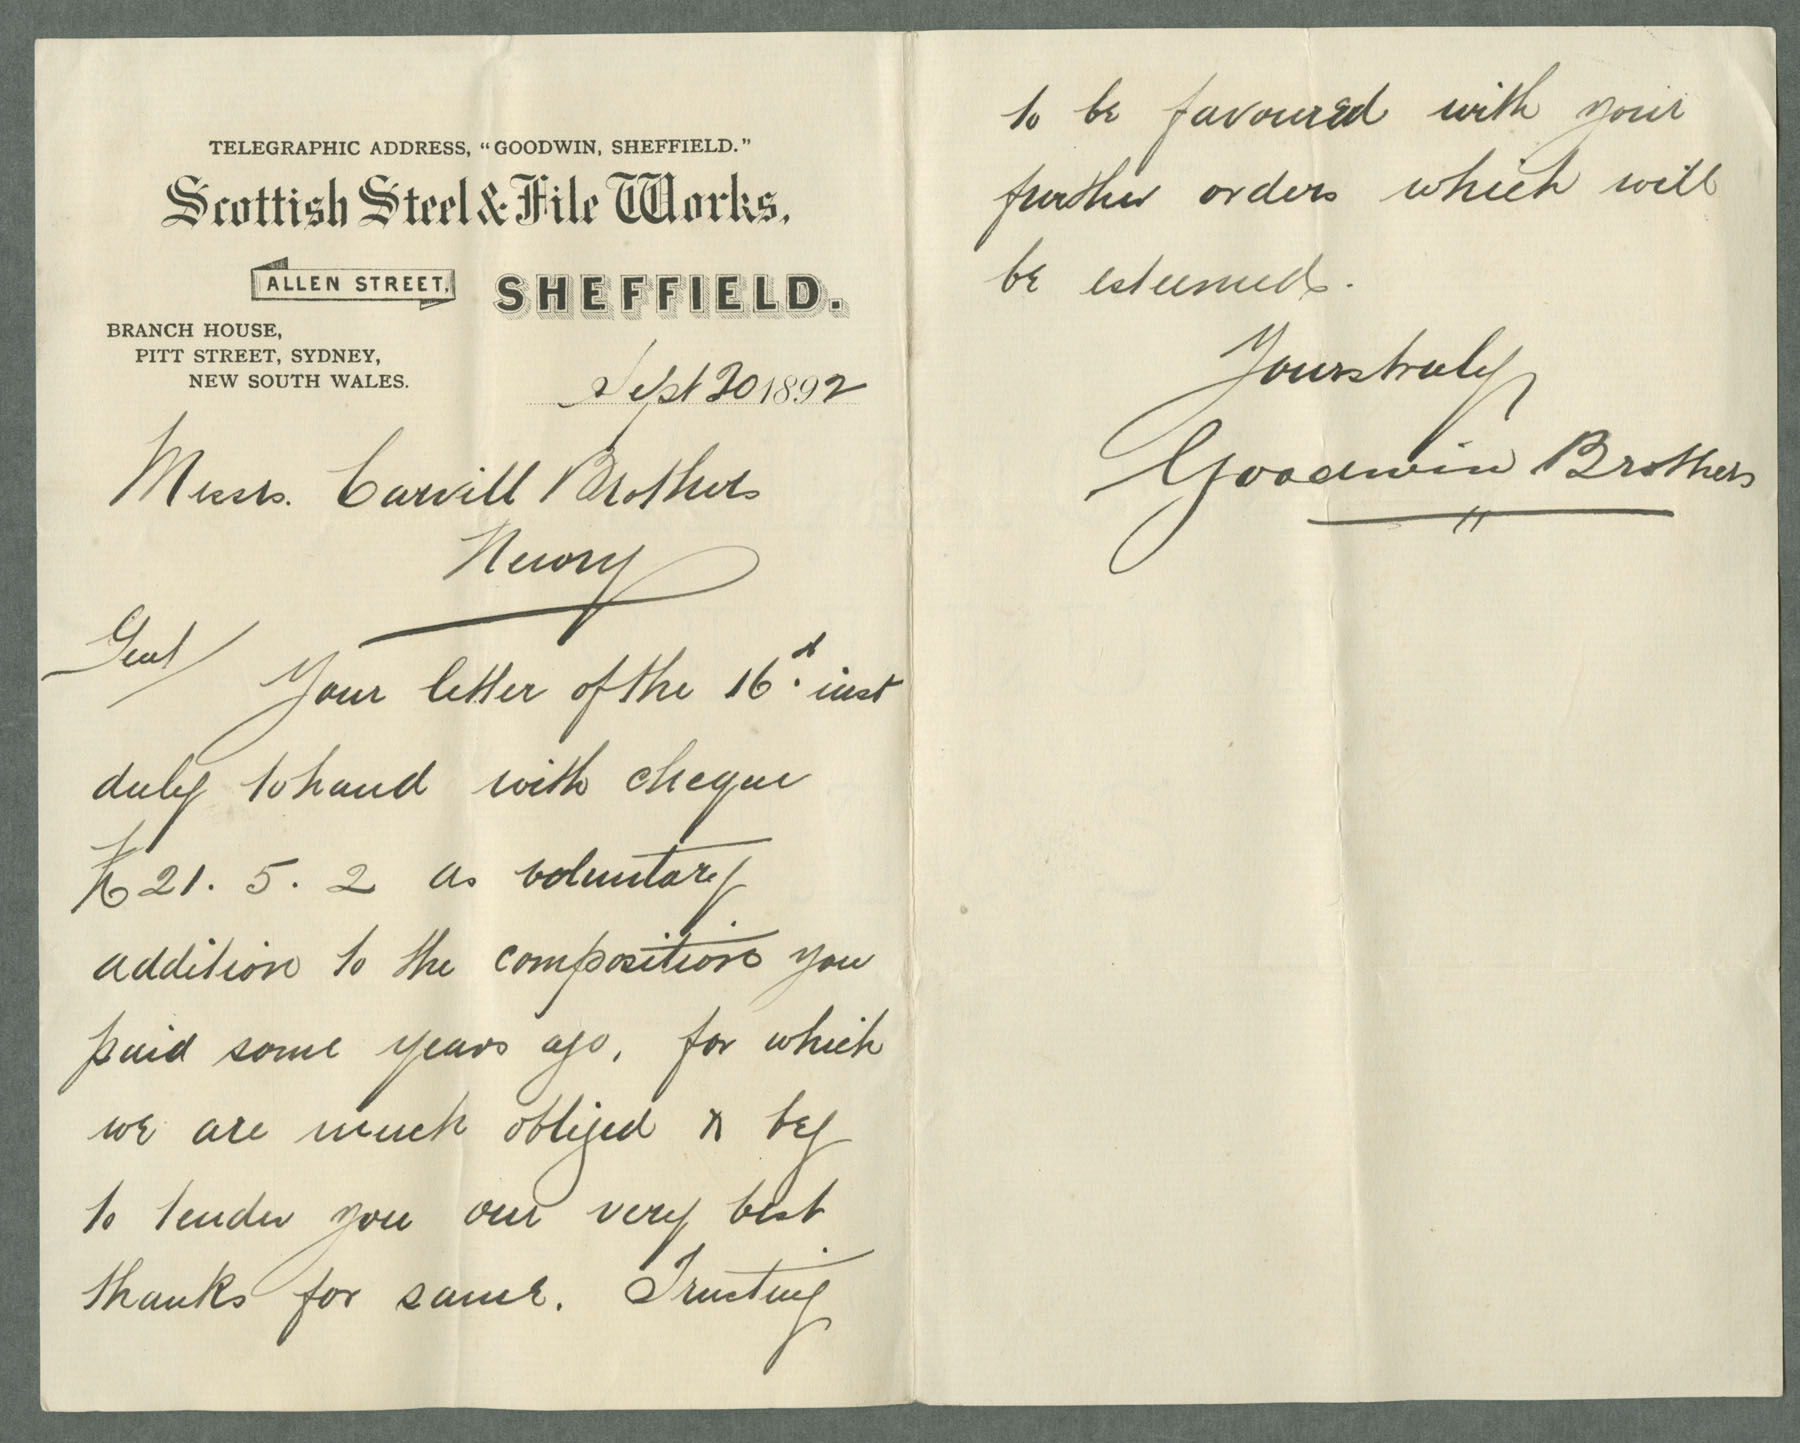 TELEGRAPHIC ADDRESS, "GOODWIN, SHEFFIELD."
Scottish Steel & File Works,
ALLEN STREET, SHEFFIELD.
BRANCH HOUSE,
PITT STREET, SYDNEY,
NEW SOUTH WALES.
Sept 20 1892
Messrs. Carvill Brothers
Newry
Gent
Your letter of the 16th inst
duly to hand with cheque
£21. 5. 2 as voluntary
addition to the composition you
paid some years ago, for which
we are much obliged & beg
to tender you our very best
thanks for same. Trusting
to be favoured with your
further orders which will
be esteemed.
Yours truly
Goodwin Brothers